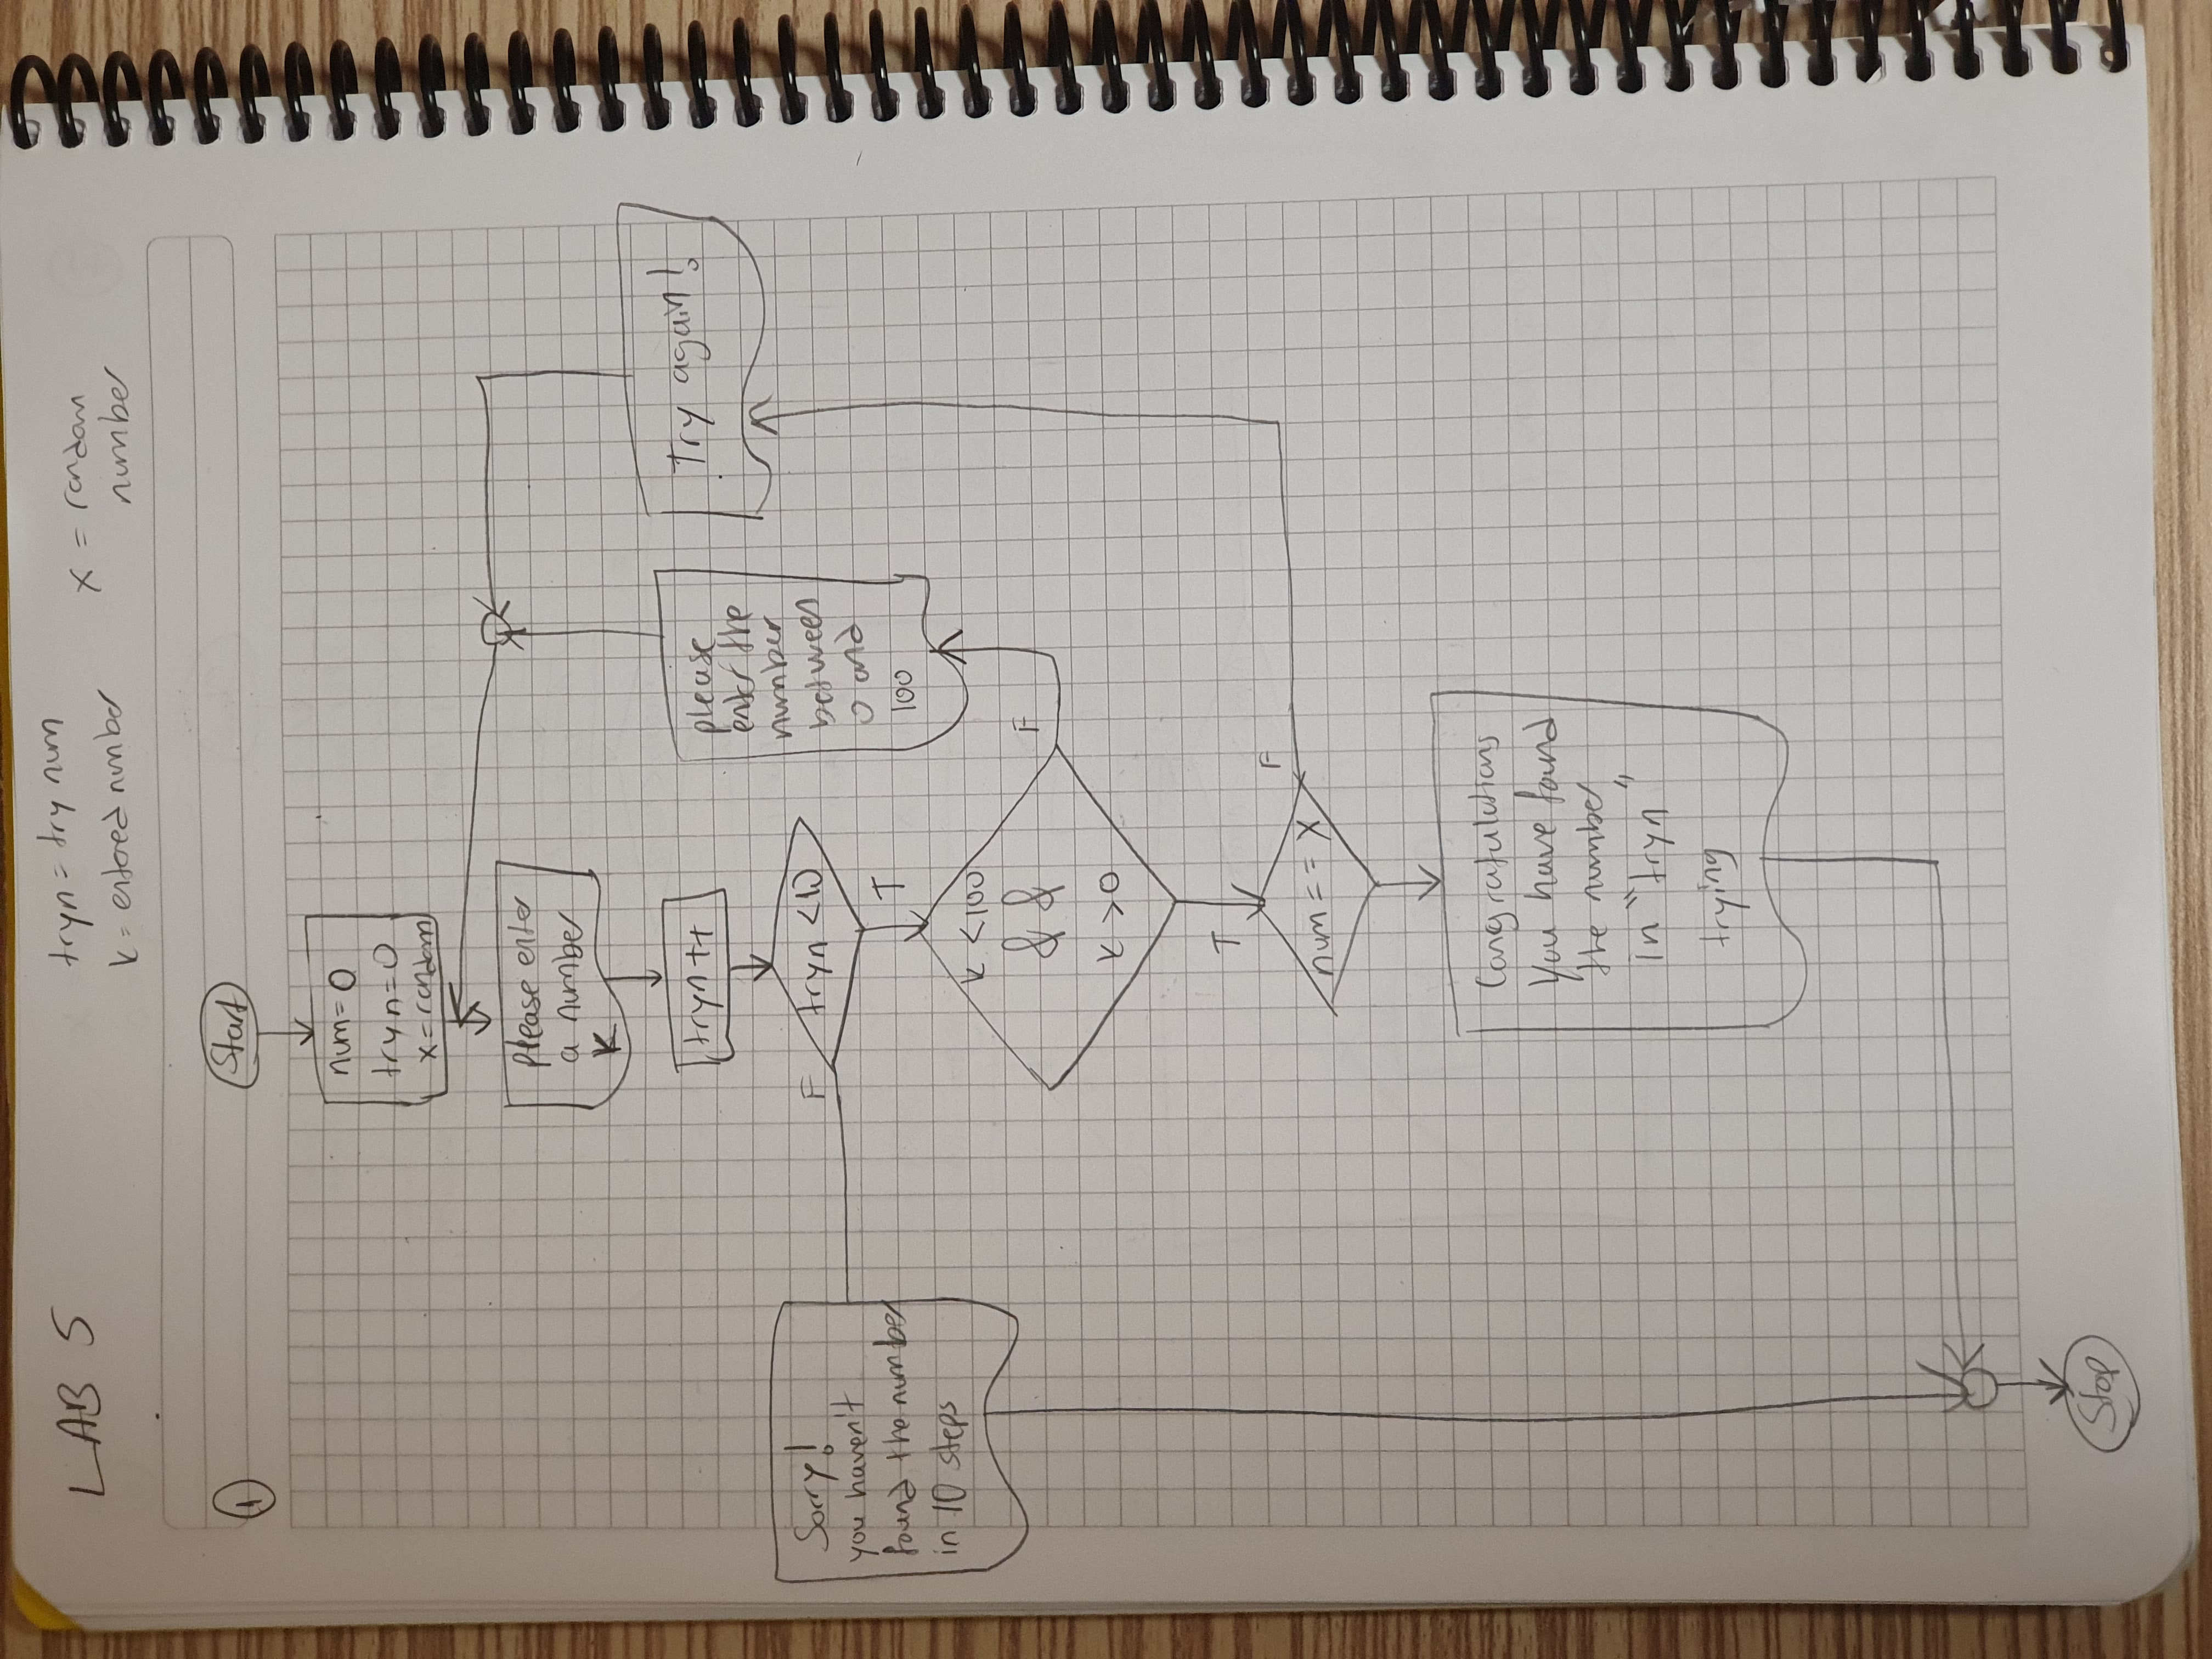 LAB 5
tryn = try num
k = entered number
x = random
number
1
Start
num = 0
tryn = 0
x = random
please enter
a number
k
tryn ++
tryn < 10
F
T
Sorry!
you haven't
found the number
in 10 steps
please
enter the
number
between
0 and
100
Try again!
k < 100
&&
k > 0
F
T
num == X
F
Congratulations
You have found
the number
in "tryn"
trying
Stop